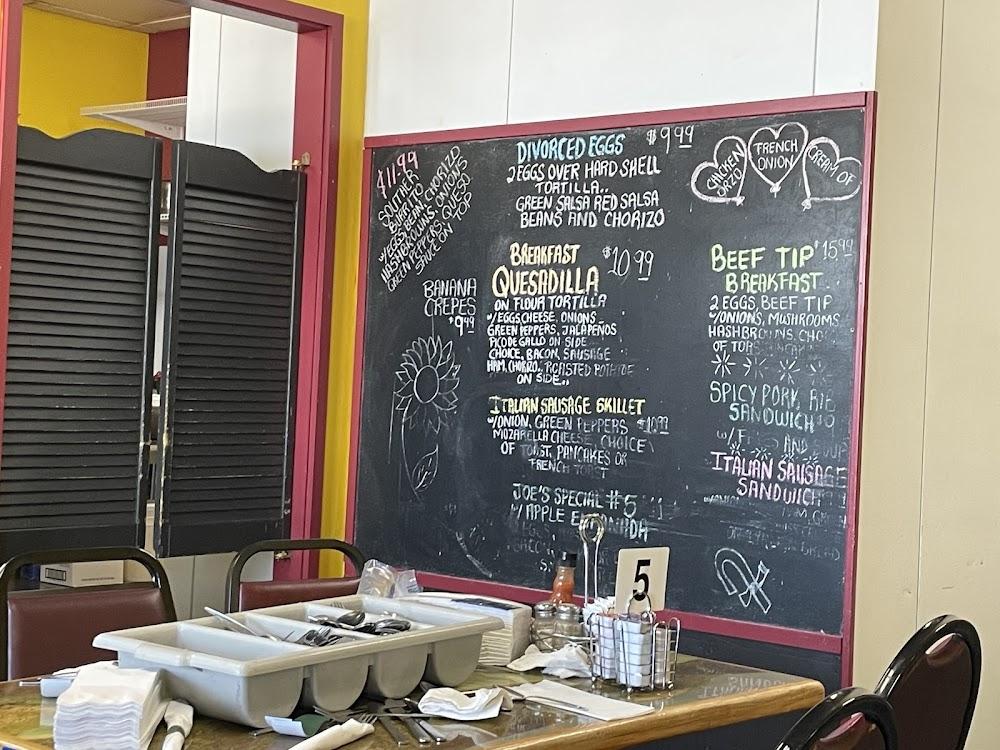 $11.99
SOUTHER
BURRITO
W/EGGS, BEAN, CHORIZO
HASHBROWNS, ONIONS
GREEN PEPPERS, QUESO
SAUCE ON TOP
BANANA
CREPES
$9.49
DIVORCED EGGS $9.99
2 EGGS OVER HARD SHELL
TORTILLA..
GREEN SALSA RED SALSA
BEANS AND CHORIZO
BREAKFAST $10.99
QUESADILLA
ON FLOUR TORTILLA
W/EGGS, CHEESE, ONIONS
GREEN PEPPERS, JALAPENOS
PICO DE GALLO ON SIDE
CHOICE, BACON, SAUSAGE
HAM, CHORIZO.. ROASTED POTATOE
ON SIDE..
ITALIAN SAUSAGE SKILLET
W/ONION, GREEN PEPPERS $10.99
MOZARELLA CHEESE, CHOICE
OF TOAST, PANCAKES OR
FRENCH TOAST
JOE'S SPECIAL #5
W/ APPLE
CHICKEN
ORZO
FRENCH
ONION
CREAM OF
BEEF TIP $15.99
BREAKFAST
2 EGGS, BEEF TIP
W/ONIONS, MUSHROOMS
HASHBROWNS, CHO
OF
SPICY PORK RIB
SANDWICH
W/ FRIES AND SOUP
ITALIAN SAUSAGE
SANDWICH
5